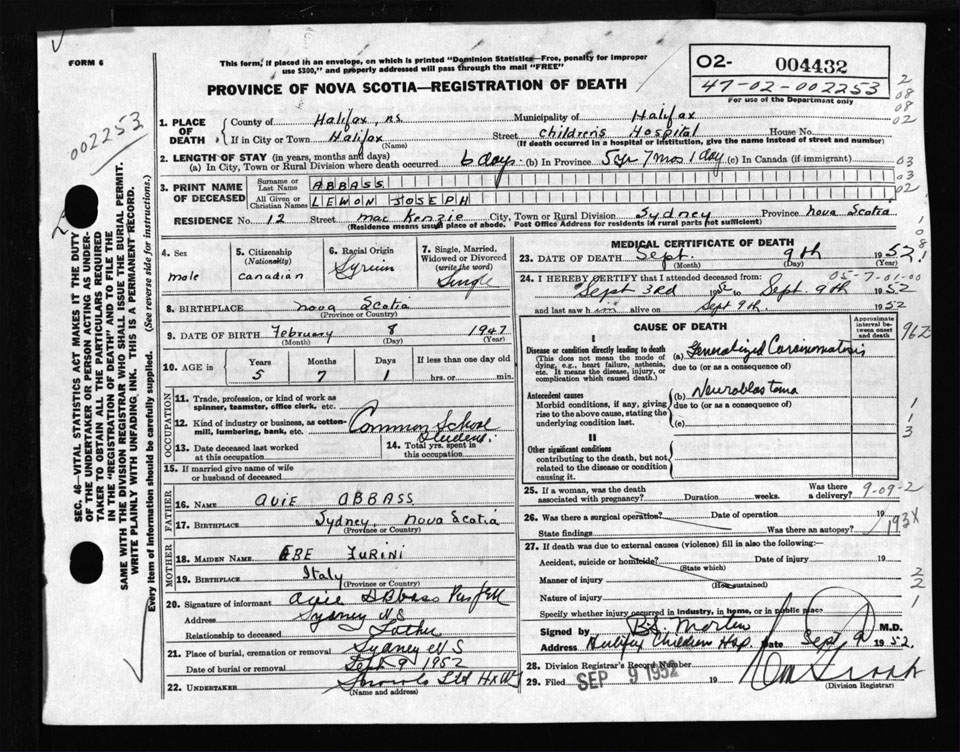 FORM 6
This form, if placed in an envelope, on which is printed "Dominion Statistics—Free, penalty for improper
use $300," and properly addressed will pass through the mail "FREE"
02- 004432
47-02-002253
For use of the Department only
PROVINCE OF NOVA SCOTIA—REGISTRATION OF DEATH
002253
1. PLACE OF DEATH
County of Halifax, N.S. Municipality of Halifax
If in City or Town Halifax Street Children's Hospital House No.
(Name) (If death occurred in a hospital or institution, give the name instead of street and number)
2. LENGTH OF STAY (in years, months and days)
(a) In City, Town or Rural Division where death occurred 6 days (b) In Province 5 yr 7 mos 1 day (c) In Canada (if immigrant)
3. PRINT NAME OF DECEASED
Surname or Last Name ABBASS
All Given or Christian Names LEWON JOSEPH
RESIDENCE No. 12 Street MacKenzie City, Town or Rural Division Sydney Province Nova Scotia
(Residence means usual place of abode. Post Office Address for residents in rural parts not sufficient)
4. Sex male
5. Citizenship (Nationality) Canadian
6. Racial Origin
7. Single, Married, Widowed or Divorced (write the word) Single
8. BIRTHPLACE Nova Scotia
(Province or Country)
9. DATE OF BIRTH February 8 1947
(Month) (Day) (Year)
10. AGE in Years Months Days If less than one day old
5 7 1 hrs. or min.
OCCUPATION
11. Trade, profession, or kind of work as spinner, teamster, office clerk, etc.
12. Kind of industry or business, as cotton-mill, lumbering, bank, etc. Common School Student
13. Date deceased last worked at this occupation
14. Total yrs. spent in this occupation
15. If married give name of wife or husband of deceased
FATHER
16. NAME Avie Abbass
17. BIRTHPLACE Sydney, Nova Scotia
(Province or Country)
MOTHER
18. MAIDEN NAME EBE TURINI
19. BIRTHPLACE Italy
(Province or Country)
20. Signature of informant Avie Abbass
Address Sydney N.S.
Relationship to deceased Father
21. Place of burial, cremation or removal Sydney N S
Date of burial or removal Sept 9 1952
22. UNDERTAKER Ltd Hfx
(Name and address)
MEDICAL CERTIFICATE OF DEATH
23. DATE OF DEATH Sept. 9th 1952
(Month) (Day) (Year)
05-7-01-00
24. I HEREBY CERTIFY that I attended deceased from:
Sept 3rd 1952 to Sept. 9th 1952
and last saw him alive on Sept 9th. 1952
CAUSE OF DEATH
Approximate interval between onset and death
I
Disease or condition directly leading to death
(This does not mean the mode of dying, e.g., heart failure, asthenia, etc. It means the disease, injury, or complication which caused death.)
(a) Generalized Carcinomatosis
due to (or as a consequence of)
Antecedent causes
Morbid conditions, if any, giving rise to the above cause, stating the underlying condition last.
(b) Neuroblastoma
due to (or as a consequence of)
(c)
II
Other significant conditions
contributing to the death, but not related to the disease or condition causing it.
25. If a woman, was the death associated with pregnancy? Duration weeks. Was there a delivery?
9-09-2
26. Was there a surgical operation? Date of operation 19
State findings Was there an autopsy?
193X
27. If death was due to external causes (violence) fill in also the following:—
Accident, suicide or homicide? Date of injury 19
(State which)
Manner of injury
(How sustained)
Nature of injury
Specify whether injury occurred in industry, in home, or in public place
Signed by M.D.
Address Halifax Children Hsp. Date Sept. 9 1952.
28. Division Registrar's Record Number
29. Filed SEP 9 1952
(Division Registrar)
SEC. 46—VITAL STATISTICS ACT MAKES IT THE DUTY
OF THE UNDERTAKER OR PERSON ACTING AS UNDER-
TAKER TO OBTAIN ALL THE PARTICULARS REQUIRED
IN THE "REGISTRATION OF DEATH" AND TO FILE THE
SAME WITH THE DIVISION REGISTRAR WHO SHALL ISSUE THE BURIAL PERMIT.
WRITE PLAINLY WITH UNFADING INK. THIS IS A PERMANENT RECORD.
Every item of Information should be carefully supplied. (See reverse side for instructions.)